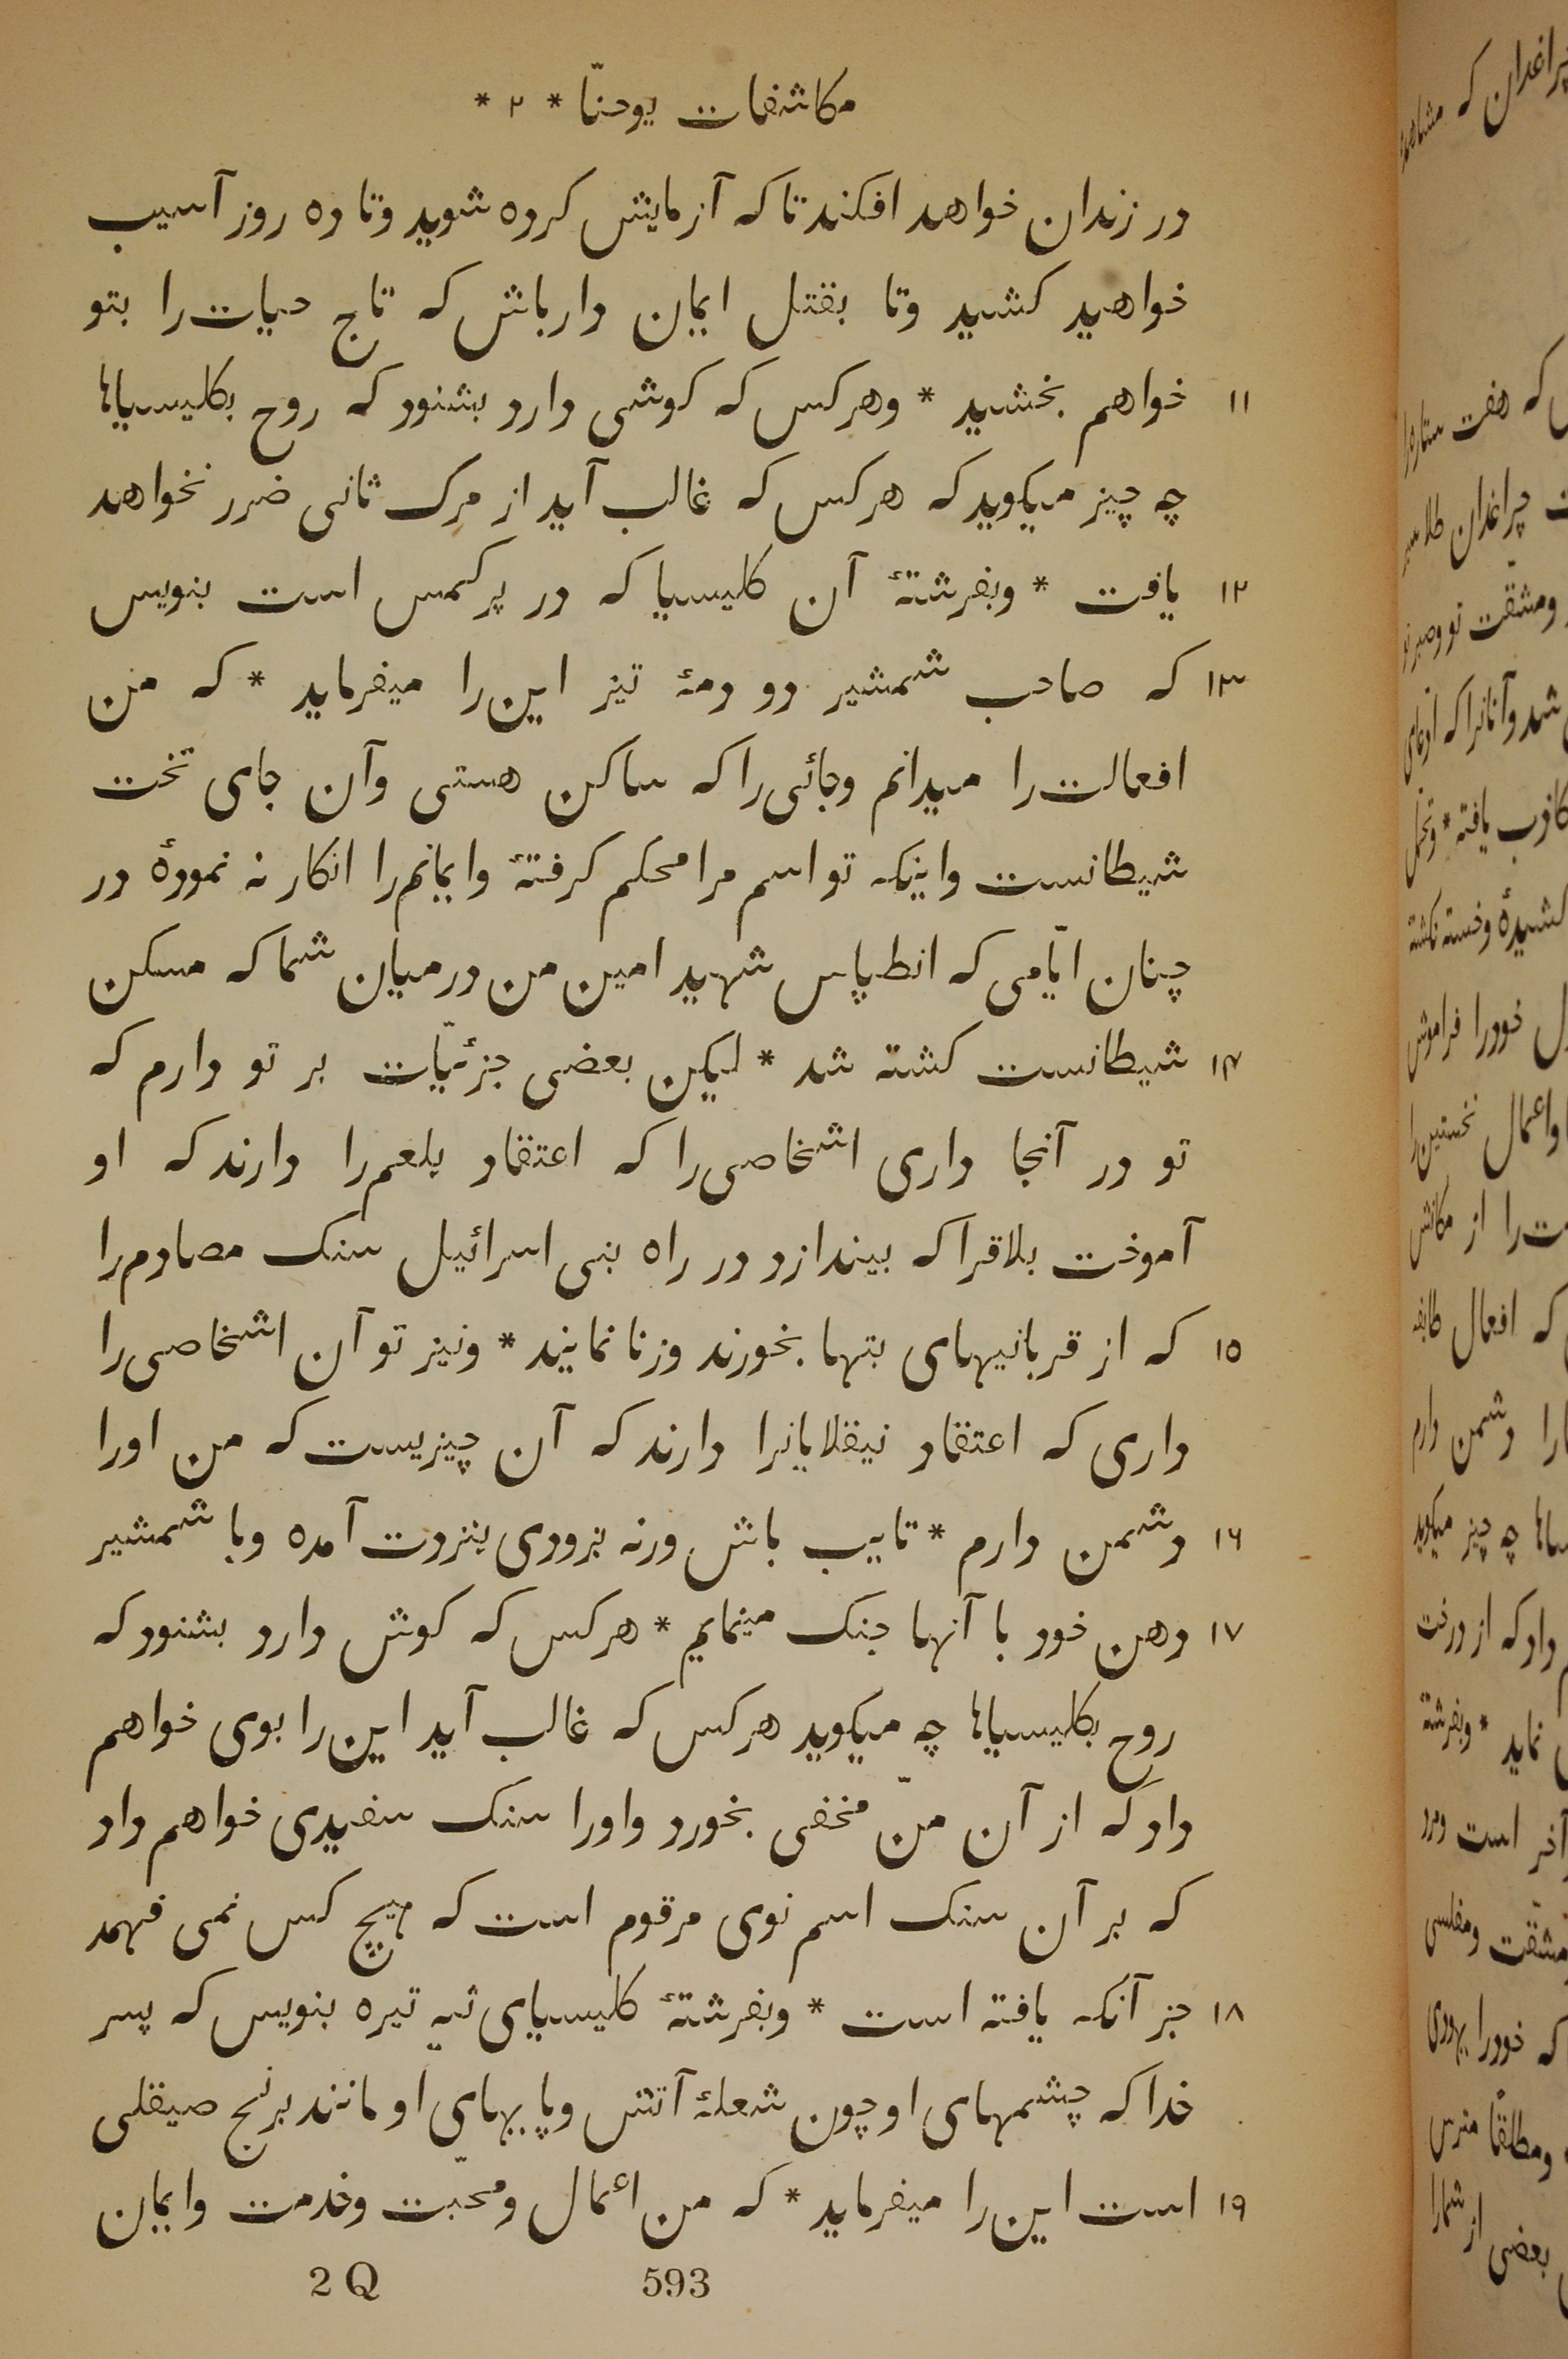 مکاشفات یوحنّا * ۲ *
در زندان خواهد افکند تا که آزمایش کرده شوید وتا ده روز آسیب
خواهید کشید وتا بقتل ایمان دار باش که تاج حیات را بتو
۱۱ خواهم بخشید * وهر کس که کوشی دارد بشنود که روح بکلیسیاها
چه چیز میکوید که هر کس که غالب آید از مرک ثانی ضرر نخواهد
۱۲ یافت * وبفرشتهٔ آن کلیسیا که در پرکمس است بنویس
۱۳ که صاحب شمشیر دو دمهٔ تیز این را میفرماید * که من
افعالت را میدانم وجائی را که ساکن هستی وآن جای تخت
شیطانست واینکه تو اسم مرا محکم کرفتهٔ وایمانم را انکار نه نمودهٔ در
چنان ایّامی که انطپاس شهید امین من در میان شما که مسکن
۱۴ شیطانست کشته شد * لیکن بعضی جزئیّات بر تو دارم که
تو در آنجا داری اشخاصی را که اعتقاد بلعم را دارند که او
آموخت بلاقرا که بیندازد در راه بنی اسرائیل سنک مصادم را
۱۵ که از قربانیهای بتها بخورند وزنا نمایند * ونیز تو آن اشخاصی را
داری که اعتقاد نیقلایانرا دارند که آن چیزیست که من اورا
۱۶ دشمن دارم * تایب باش ورنه بزودی بنزدت آمده وبا شمشیر
۱۷ دهن خود با آنها جنک مینمایم * هر کس که کوش دارد بشنود که
روح بکلیسیاها چه میکوید هر کس که غالب آید این را بوی خواهم
داد که از آن منّ مخفی بخورد واورا سنک سفیدی خواهم داد
که بر آن سنک اسم نوی مرقوم است که هیچ کس نمی فهمد
۱۸ جز آنکه یافته است * وبفرشتهٔ کلیسیای ثیه تیره بنویس که پسر
خدا که چشمهای او چون شعلهٔ آتش وپایهای او مانند برنج صیقلی
۱۹ است این را میفرماید * که من اعمال ومحبّت وخدمت وایمان
593 2 Q
چراغدان که مشاهده
که هفت ستاره را
چراغدان طلا
ومشقت تو وصبر تو
شد وآنانرا که
کاذب یافته *
کشیدهٔ وخسته نکشته
خود را فراموش
واعمال نخستین را
را از مکانش
که افعال
دشمن دارم
چه چیز میکوید
داد که از درخت
نماید * وبفرشتهٔ
آخر است
مشقت ومفلسی
که خود را یهودی
ومطلقًا مترس
بعضی از شمارا